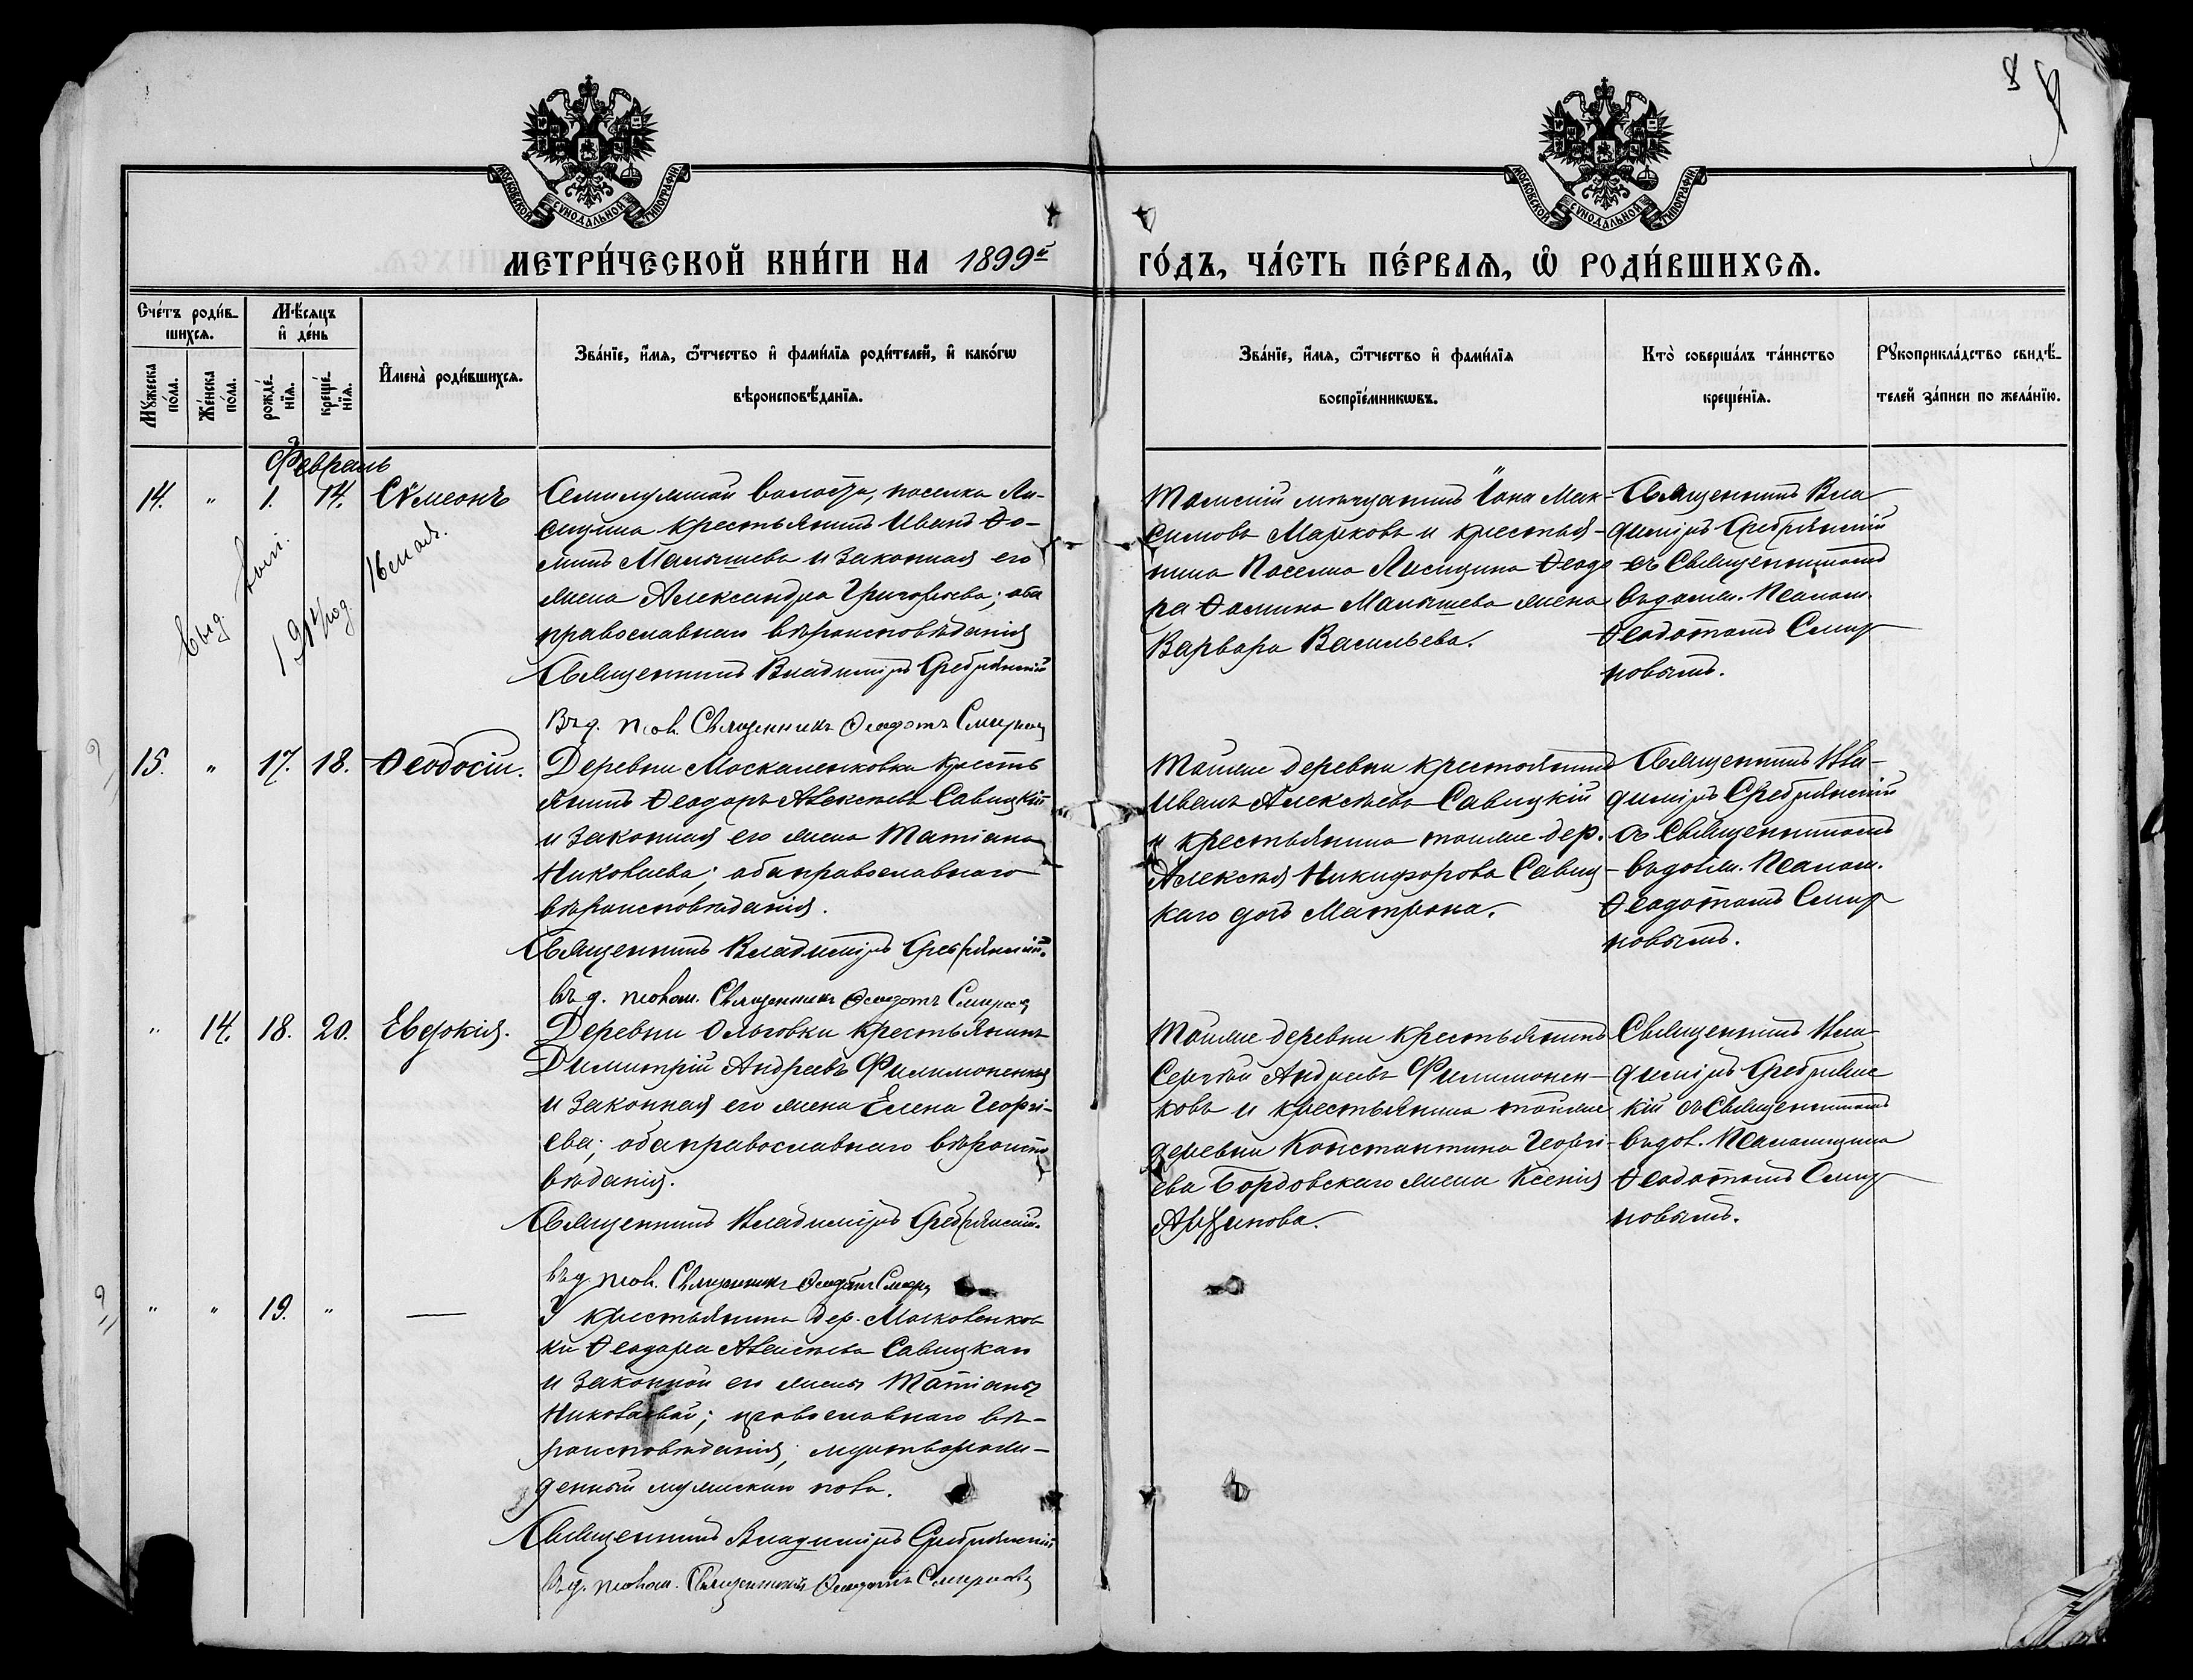 8
МОСКОВСКОЙ СУНОДАЛЬНОЙ ТИПОГРАФІИ
МОСКОВСКОЙ СУНОДАЛЬНОЙ ТИПОГРАФІИ
МЕТРИ́ЧЕСКОЙ КНИ́ГИ НА 1899й
ГО́ДЪ, ЧА́СТЬ ПЕ́РВАѦ, Ѡ҆ РОДИ́ВШИХСѦ.
Сче́тъ роди́в-
шихсѧ.
Мꙋ́жеска
по́ла.
Же́нска
по́ла.
Мѣ́сѧцъ
и҆ де́нь
рожде́-
нїѧ.
креще́-
нїѧ.
И҆мена̀ роди́вшихсѧ.
Зва́нїе, и҆́мѧ, ѻ҆́тчество и҆ фами́лїѧ роди́телей, и҆ како́гѡ
вѣроисповѣ́данїѧ.
Зва́нїе, и҆́мѧ, ѻ҆́тчество и҆ фами́лїѧ
воспрїе́мникѡвъ.
Кто̀ соверша́лъ та́инство
креще́нїѧ.
Рꙋкоприкла́дство свидѣ́-
телей за́писи по жела́нїю.
Февраль
14. " 1. 14. Сѷмеонъ
16 мая.
Выд.
191 год.
волости, поселка Ли-
сицина крестьянинъ Иванъ Ѳо-
минъ Малышевъ и законная его
жена Александра Григорьева; оба
православнаго вѣроисповѣданія
Священникъ Владиміръ Сребрянскій
Въ д. псал. Священникъ Ѳеодотъ Смирновъ
Томскій мѣщанинъ Іона Мак-
симовъ Марковъ и крестья-
нина Поселка Лисицина Ѳеодо
ра Ѳомина Малышева жена
Варвара Васильева.
Священникъ Вла
диміръ Сребрянскій
съ Священникомъ
въ должн. Псалом.
Ѳеодотомъ Смир
новымъ.
15. " 17. 18. Ѳеодосій.
Деревни Москаленковки кресть
янинъ Ѳеодоръ Алексѣевъ Савицкій
и законная его жена Татіана
Николаева; оба православнаго
вѣроисповѣданія.
Священникъ Владиміръ Сребрянскій.
Въ д. псалом. Священникъ Ѳеодотъ Смирновъ
Тойже деревни крестьянинъ
Иванъ Алексѣевъ Савицкій
и крестьянина тойже дер.
Алексѣя Никифорова Савиц-
каго дочь Матрона.
Священникъ Вла-
диміръ Сребрянскій
съ Священникомъ
въ должн. Псалом.
Ѳеодотомъ Смир
новымъ.
" 14. 18. 20. Евдокія.
Деревни Ольговки крестьянинъ
Димитрій Андреевъ Филимоненковъ
и законная его жена Елена Георгі-
ева; оба православнаго вѣроиспо
вѣданія.
Священникъ Владиміръ Сребрянскій.
Въ д. псал. Священникъ Ѳеодотъ Смирновъ
Тойже деревни крестьянинъ
Сергѣй Андреевъ Филимонен-
ковъ и крестьянина тойже
деревни Константина Георгі-
ева Бордовскаго жена Ксенія
Священникъ Вла-
диміръ Сребрянс
кій съ Священникомъ
въ дол. Псаломщика
Ѳеодотомъ Смир
новымъ.
" " 19. " —
У крестьянина дер. Москаленков
ки Ѳеодора Алексѣева Савицкаго
и законной его жены Татіаны
Николаевой; православнаго вѣ-
роисповѣданія, мертворож-
денный мужескаго пола.
Священникъ Владиміръ Сребрянскій
Въ д. псалом. Священникъ Ѳеодотъ Смирновъ